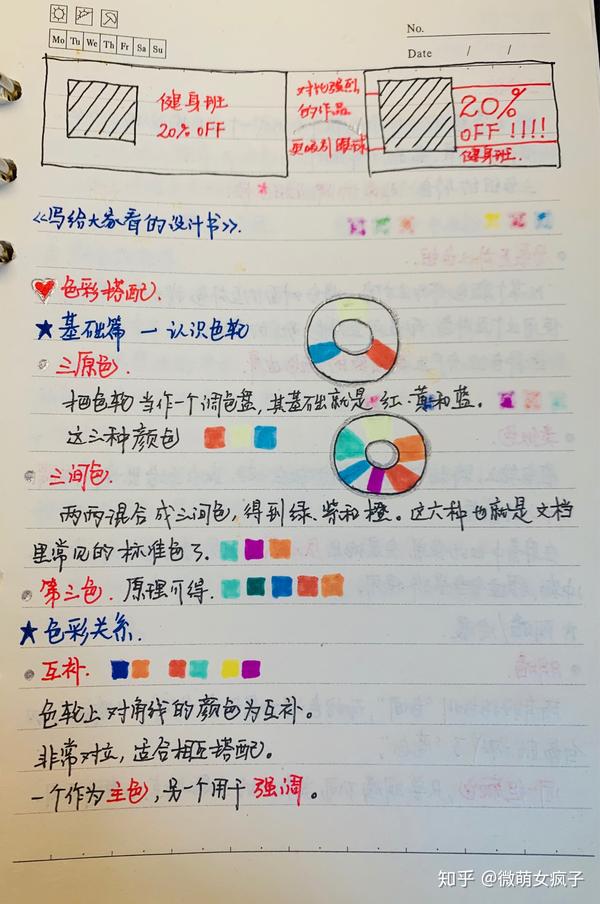 No.
Mo Tu We Th Fr Sa Su
Date / /
健身班
20% OFF
对比强烈
的作品
更吸引眼球
20%
OFF !!!!
健身班.
《写给大家看的设计书》.
色彩搭配.
★ 基础篇 — 认识色轮
三原色.
把色轮当作一个调色盘,其基础就是红.黄和蓝。
这三种颜色
三间色.
两两混合成三间色,得到绿、紫和橙。这六种也就是文档
里常见的标准色了.
第三色. 原理可得.
★ 色彩关系.
互补.
色轮上对角线的颜色为互补。
非常对立,适合相互搭配。
一个作为主色,另一个用于强调。
知乎 @微萌女疯子